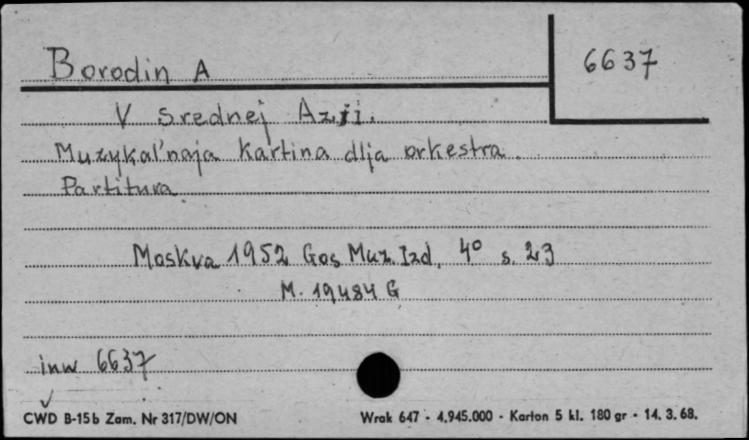 Borodin A
6637
V srednej Azji.
Muzykal'naja kartina dlja orkestra.
Partitura
Moskva 1952 Gos Muz. Izd. 4° s. 23
M. 19484 G
inw 6637
CWD B-15b Zam. Nr 317/DW/ON Wrak 647 - 4.945.000 - Karton 5 kl. 180 gr - 14. 3. 68.